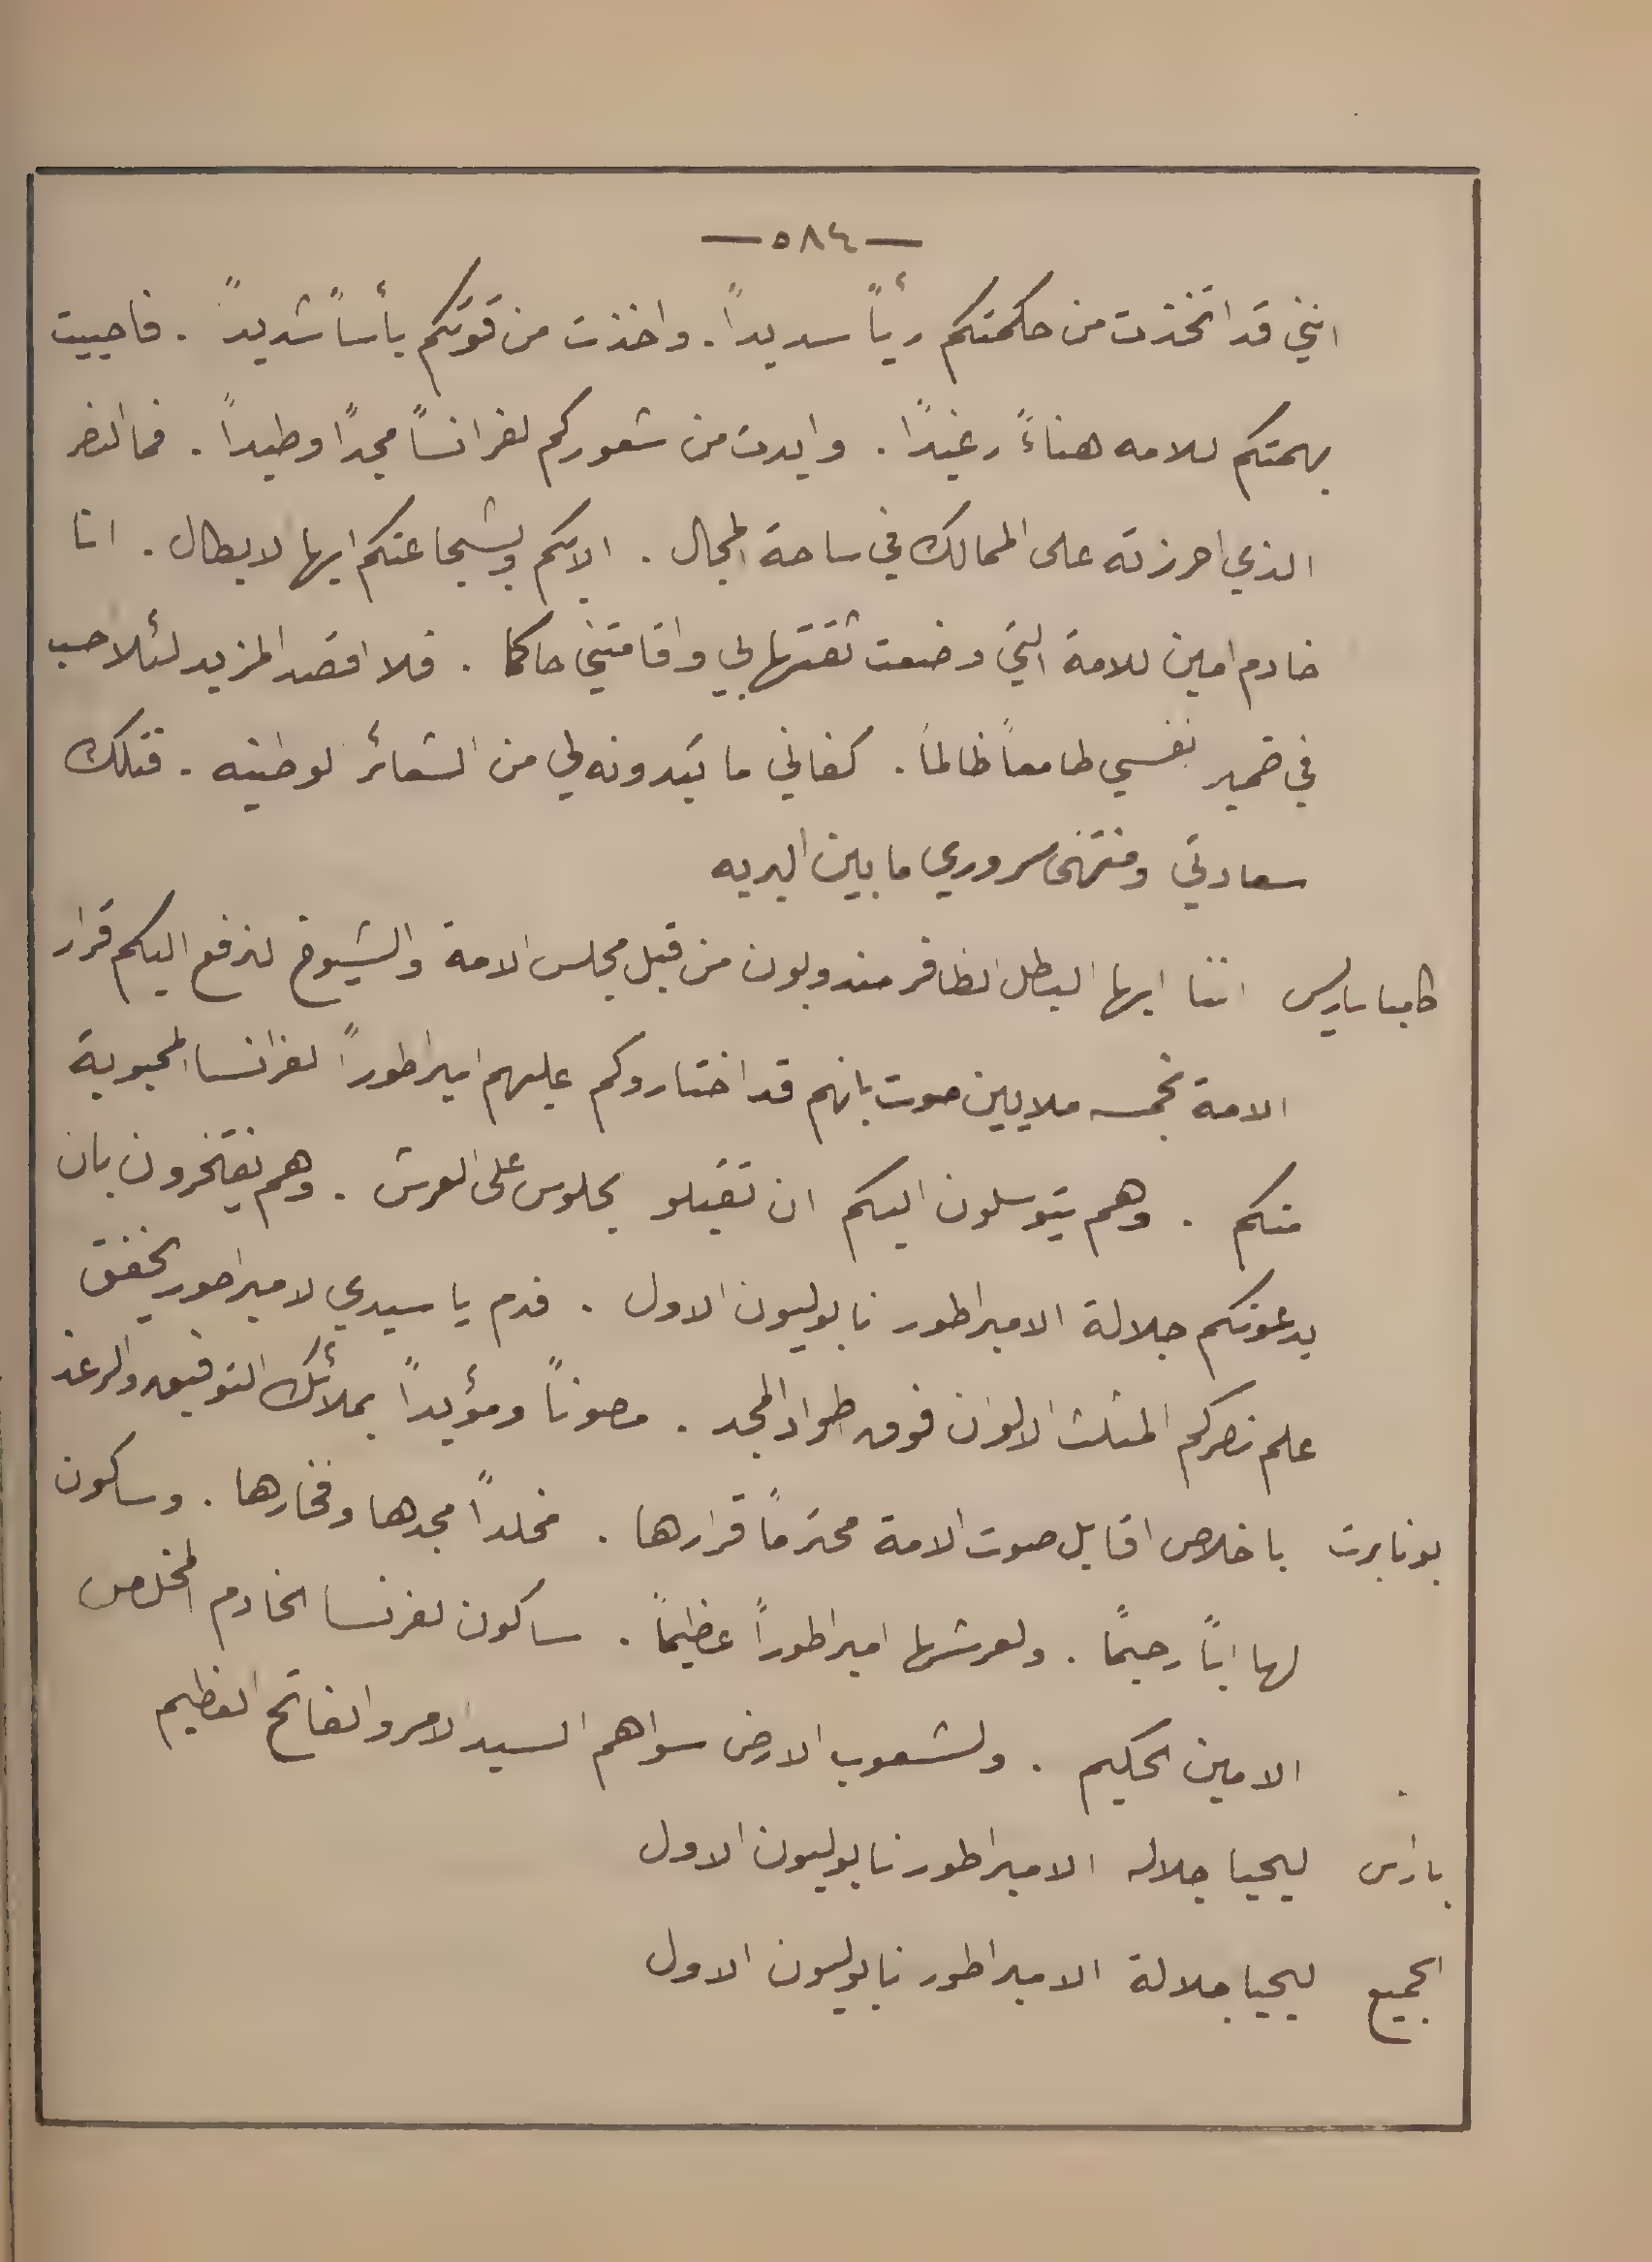 —٥٨٤—
انني قد اتخذت من حكمتكم رئياً سديداً. واخذت من قوتكم بأساً شديداً. فاحييت
بهمتكم للامه هناءً رغيداً. وايدت من شعوركم لفرانسا مجداً وطيداً. فما النصر
الذي احرزته على الممالك في ساحة المجال. الا بكم وبشجاعتكم ايها لابطال. انا
خادم امين للامة التي وضعت ثقتها بي واقامتني حاكما. فلا اقصد المزيد لئلا حسب
في ضمير نفسي طامعاً ظالماً. كفاني ما تبدونه لي من الشعائر لوطنيه. فتلك
سعادتي ومنتهى سروري ما بين البريه
كامباسارس اننا ايها البطل الظافر مندوبون من قبل مجلس الامة والشيوخ لنرفع اليكم قرار
الامة بخمسه ملايين صوت بانهم قد اختاروكم عليهم امبراطوراً لفرانسا المحبوبة
منكم. وهم يتوسلون اليكم ان تقبلو بجلوس على العرش. وهم يفتخرون بان
يدعونكم جلالة الامبراطور نابوليون الاول. فدم يا سيدي لامبراطور يخفق
علم نصركم المثلث الالوان فوق اطواد المجد. مصوناً ومؤيداً بملائك التوفيق والرغد
بونابرت باخلاص اقابل صوت الامة محترماً قرارها. مخلداً مجدها وفخارها. وساكون
لها اباً رحيماً. ولعرشها امبراطوراً عظيماً. ساكون لفرنسا الخادم المخلص
الامين الحكيم. ولشعوب الارض سواهم السيد الامر والفاتح العظيم
باراس ليحيا جلاله الامبراطور نابوليون الاول
الجميع ليحيا جلالة الامبراطور نابوليون الاول